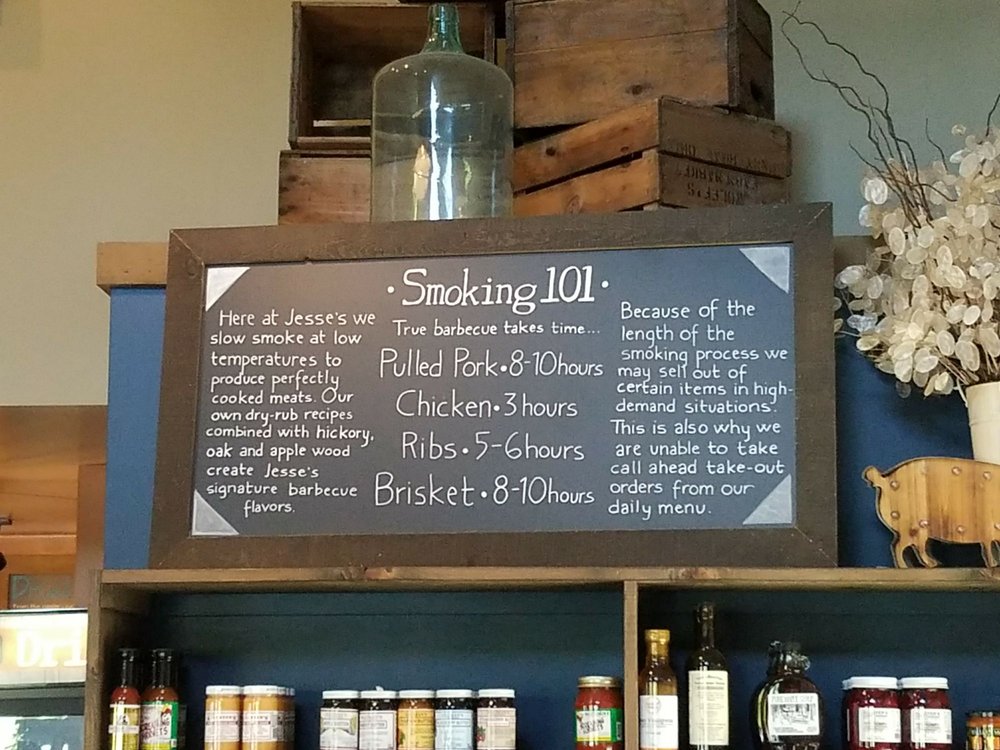 · Smoking 101 ·
Here at Jesse's we
slow smoke at low
temperatures to
produce perfectly
cooked meats. Our
own dry-rub recipes
combined with hickory,
oak and apple wood
create Jesse's
signature barbecue
flavors.
True barbecue takes time...
Pulled Pork • 8-10 hours
Chicken • 3 hours
Ribs • 5-6 hours
Brisket • 8-10 hours
Because of the
length of the
smoking process we
may sell out of
certain items in high-
demand situations.
This is also why we
are unable to take
call ahead take-out
orders from our
daily menu.
Dri